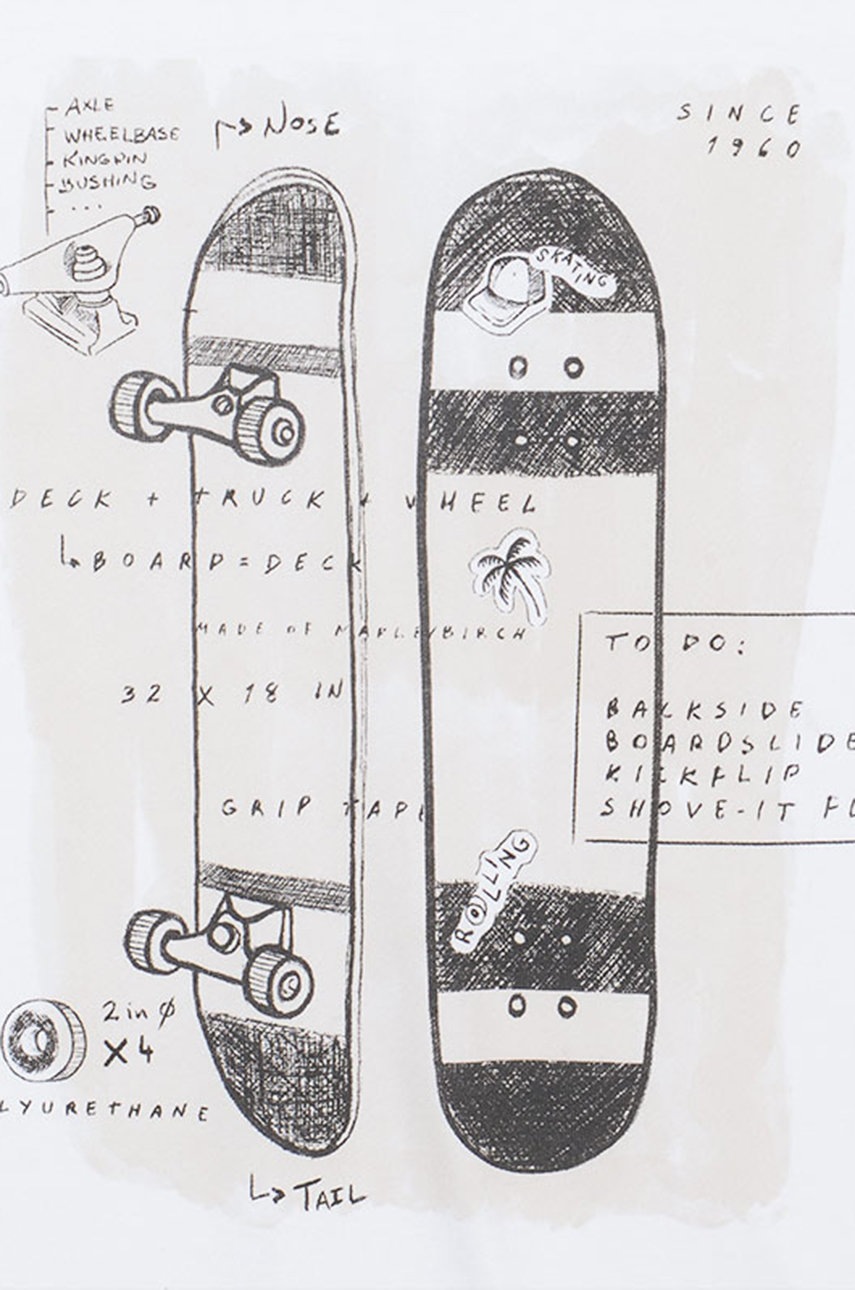 AXLE
WHEELBASE
KINGPIN
BUSHING
...
NOSE
SINCE
1960
SKATING
DECK + TRUCK + WHEEL
BOARD = DECK
MADE OF MAPLE/BIRCH
32 X 18 IN
TO DO:
BACKSIDE
BOARDSLIDE
KICKFLIP
SHOVE-IT FL
GRIP TAPE
ROLLING
2 in Ø
X 4
LYURETHANE
TAIL